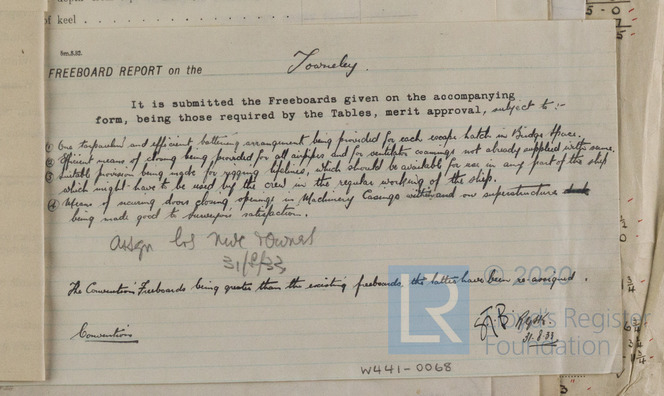 of keel
5-0
Sen.5.32.
FREEBOARD REPORT on the Towneley.
It is submitted the Freeboards given on the accompanying
form, being those required by the Tables, merit approval, subject to :-
(1) One tarpaulin and efficient battening arrangement being provided for each escape hatch in Bridge space.
(2) Efficient means of closing being provided for all airpipes and for ventilator coamings not already supplied with same.
(3) Suitable provision being made for rigging lifelines, which should be available for use in any part of the ship
which might have to be used by the crew in the regular working of the ship.
(4) Means of securing doors closing openings in Machinery Casings within and on superstructure
being made good to Surveyors satisfaction.
Assgn
31/8/33
The Convention Freeboards being greater than the existing freeboards, the latter have been re-assigned.
© 2020
LR
Lloyd's Register
Foundation
Convention
31.8.33
W441-0068